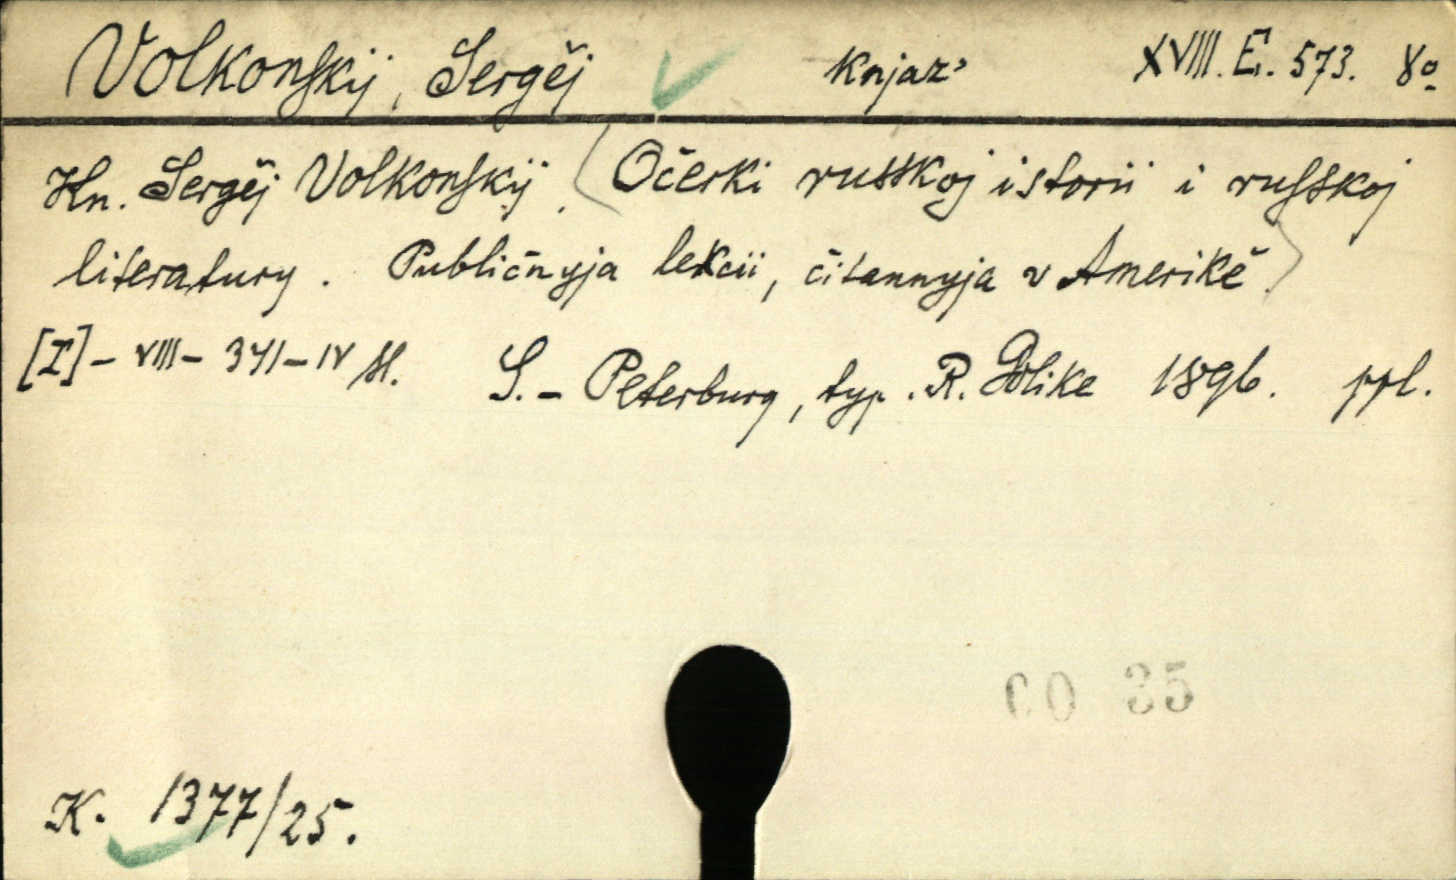 Volkonſkij, Sergěj knjaz' XVIII. E. 573. 8o
Kn. Sergěj Volkonſkij. Očerki russkoj istorii i ruſskoj
literatury. Publičnyja lekcii, čitannyja v Amerikě
[I] - VIII - 341 - IV S. S.- Peterburg, typ. R. Golike 1896. ppl.
35
K. 1377/25.